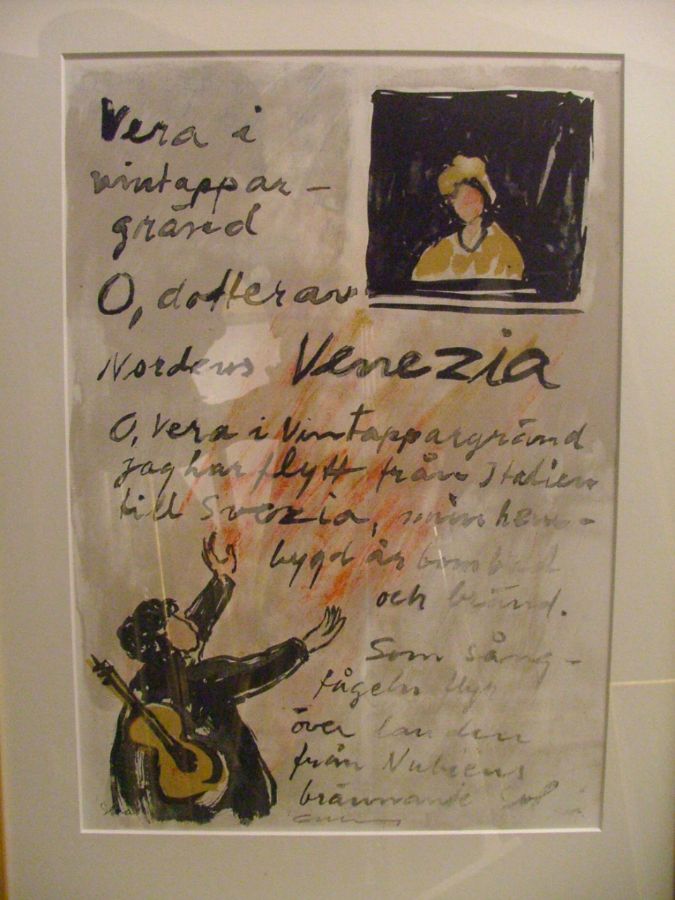 Vera i
vintappar-
gränd
O, dotter av
Nordens Venezia
O, Vera i Vintappargränd
jag har flytt från Italien
till Svezia, min hem-
bygd är bombad
och bränd.
Som sång-
fågeln flyr
över landen
från Nubiens
brännande Sol